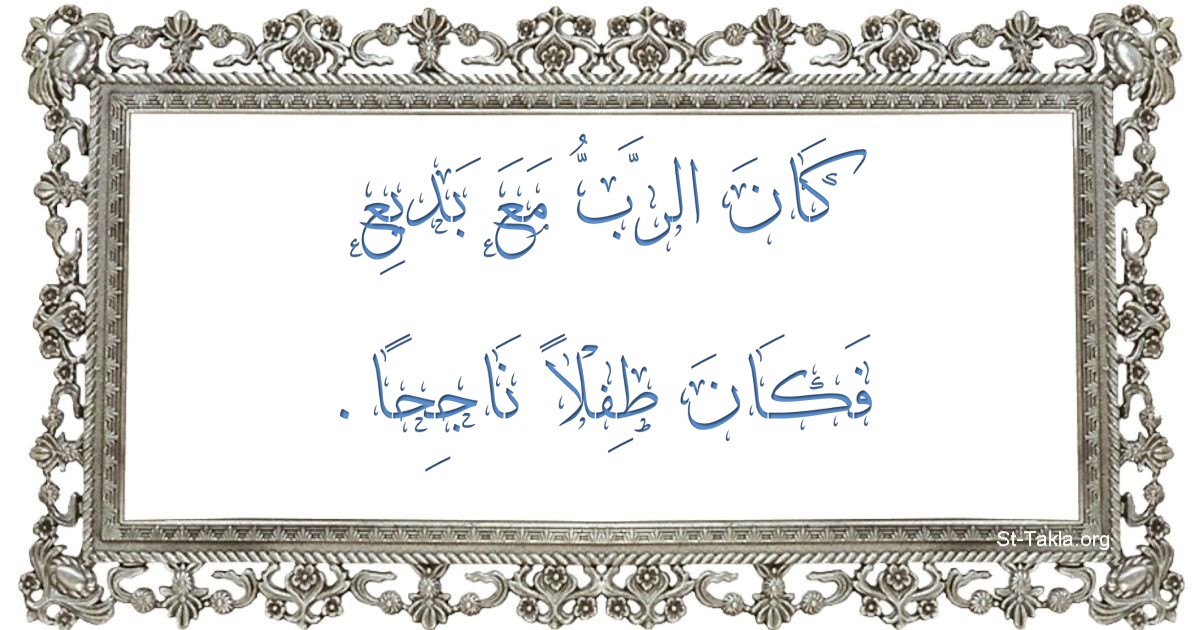 كَانَ الرَّبُّ مَعَ بَدِيعِ
فَكَانَ طِفْلاً نَاجِحًا .
St-Takla.org